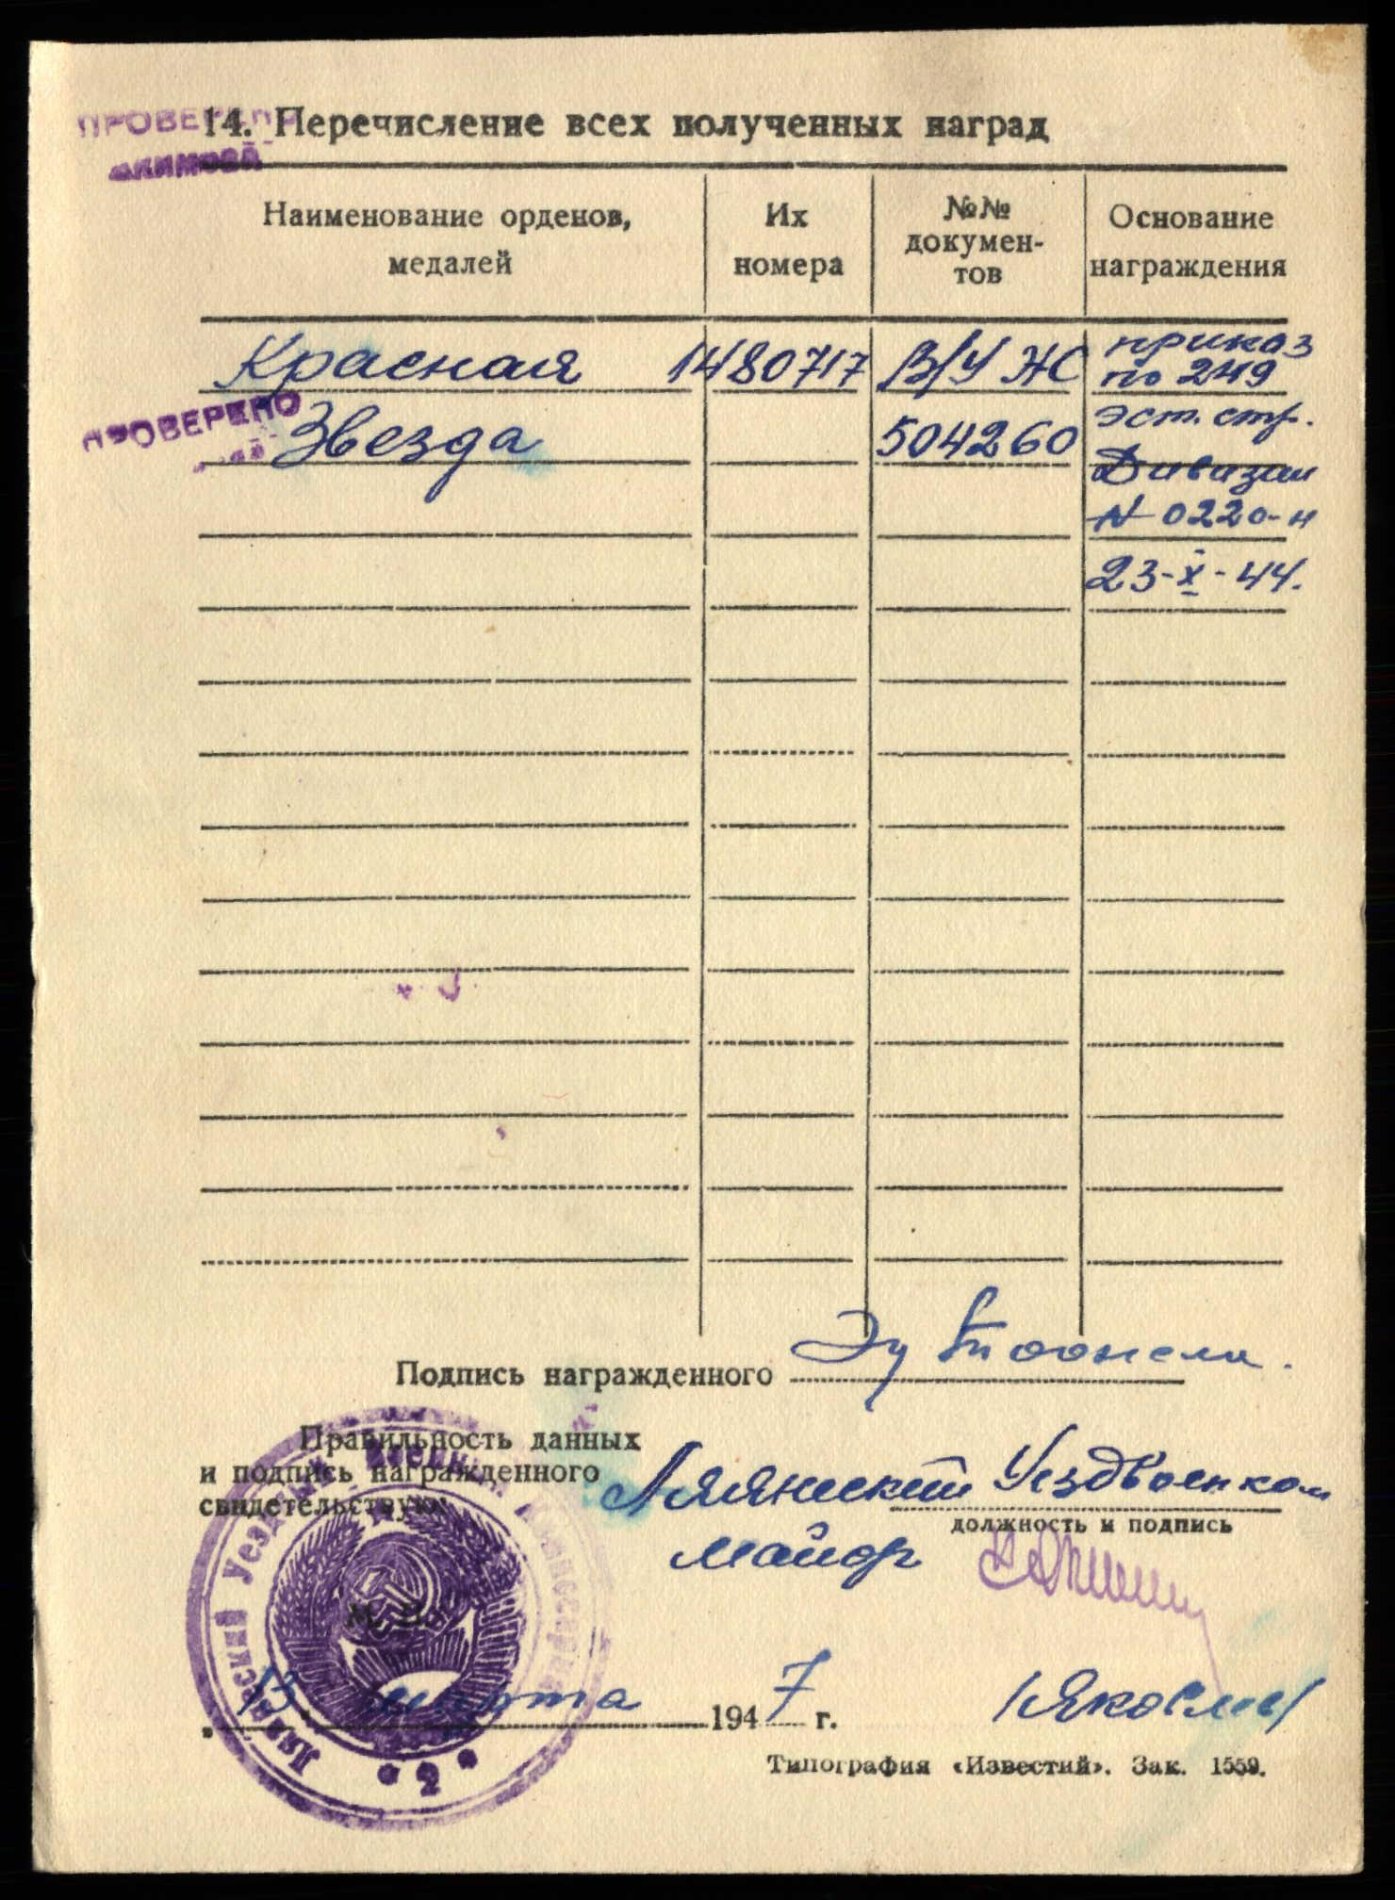 ПРОВЕРЕНО
14. Перечисление всех полученных наград
Наименование орденов, медалей
Их номера
№№ докумен-тов
Основание награждения
Красная 1480717 В/У ЖС приказ
по 249
ПРОВЕРЕНО Звезда 504260 эст. стр.
Дивизии
N 0220-н
23-X-44.
Подпись награжденного
Правильность данных
и подпись награжденного
свидетельствую:
Ляянеский Уездвоенком
должность и подпись
майор
М. П.
13 марта 1947 г.
Типография «Известий». Зак. 1559.
2